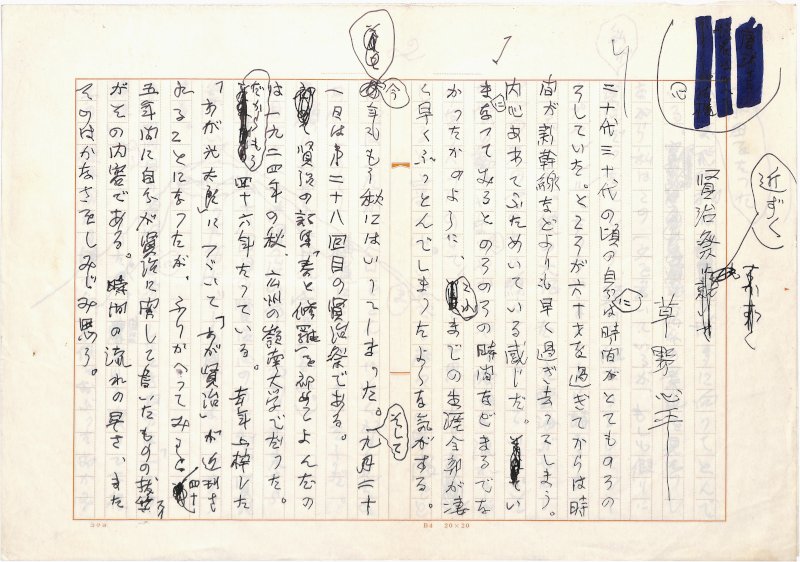 賢治祭近ずく
草野心平
二十代三十代の頃の自分には時間がとてものろの
ろしていた。ところが六十才を過ぎてからは時
間が新幹線などよりも早く過ぎ去ってしまう。
内心あわてふためいている感じだ。
まなってみるとのろのろの時間などまるでな
かったかのように、いままでの生涯全部が凄
く早くぶっとんでしまったような気がする。
今年ももう秋にはいってしまった。そして九月二十
一日は第二十八回目の賢治祭である。
賢治の詩集「春と修羅」を初めてよんだの
は一九二四年の秋、広州の嶺南大学でだった。
だからもう四十六年たっている。去年上梓した
「わが光太郎」につづいて「わが賢治」が近刊さ
れることになったが、ふりかへってみると四十
五年間に自分が賢治に関して書いたものの抜萃
がその内容である。時間の流れの早さ、また
そのはかなさをしみじみ思う。
コクヨ
B4 20×20